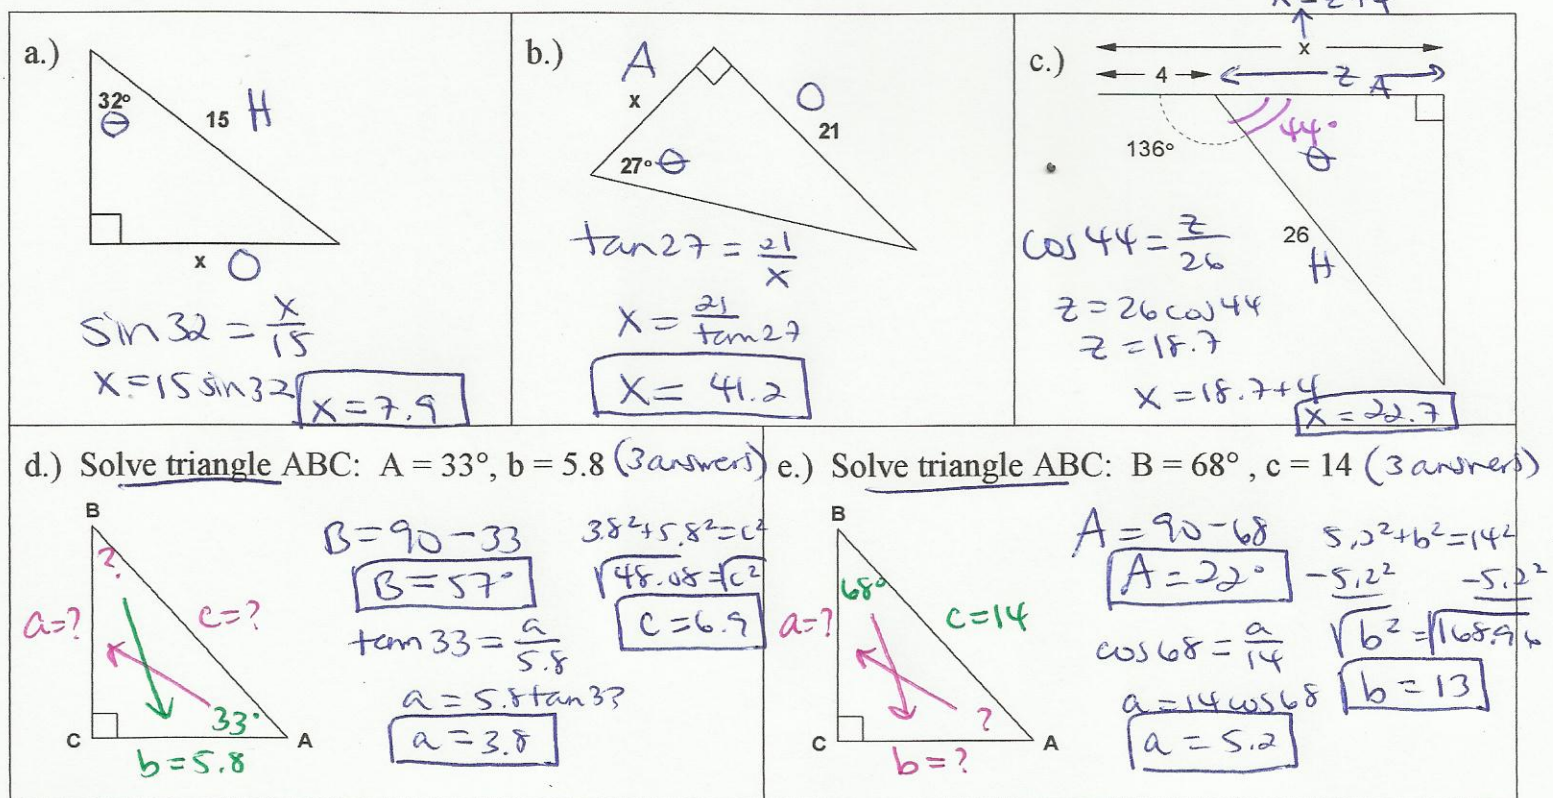 a.)
32°
θ
15 H
x O
sin 32 = x/15
x = 15 sin 32
x = 7.9
b.)
A
x
O
21
27° θ
tan 27 = 21/x
x = 21/tan 27
x = 41.2
c.)
x
4 z A
136° 44°
θ
26
H
cos 44 = z/26
z = 26 cos 44
z = 18.7
x = 18.7 + 4
x = 22.7
d.) Solve triangle ABC: A = 33°, b = 5.8 (3 answers)
B
?
a = ? c = ?
33°
C A
b = 5.8
B = 90 - 33
B = 57°
tan 33 = a/5.8
a = 5.8 tan 33
a = 3.8
3.8² + 5.8² = c²
√48.08 = √c²
c = 6.9
e.) Solve triangle ABC: B = 68°, c = 14 (3 answers)
B
68°
a = ? c = 14
?
C A
b = ?
A = 90 - 68
A = 22°
cos 68 = a/14
a = 14 cos 68
a = 5.2
5.2² + b² = 14²
-5.2² -5.2²
√b² = √168.96
b = 13